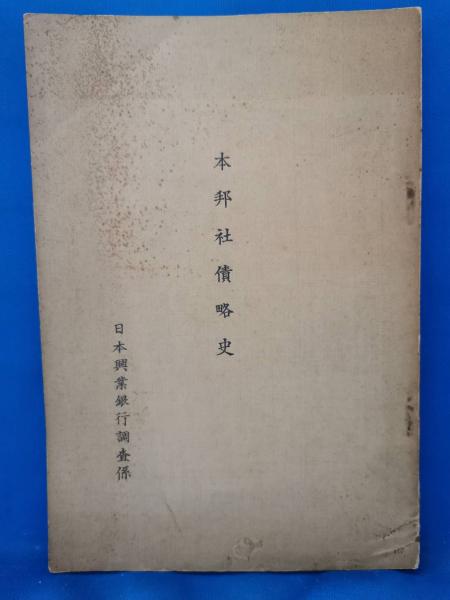 本邦社債略史
日本興業銀行調査係